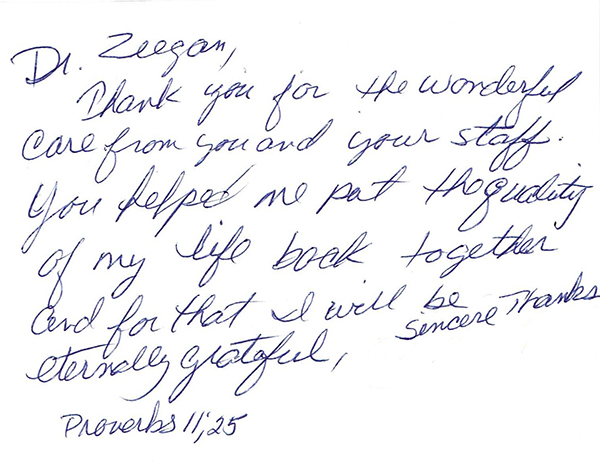 Dr. Zeegan,
Thank you for the wonderful
care from you and your staff.
You helped me put the quality
of my life back together
and for that I will be
eternally grateful,
Sincere Thanks
Proverbs 11;25